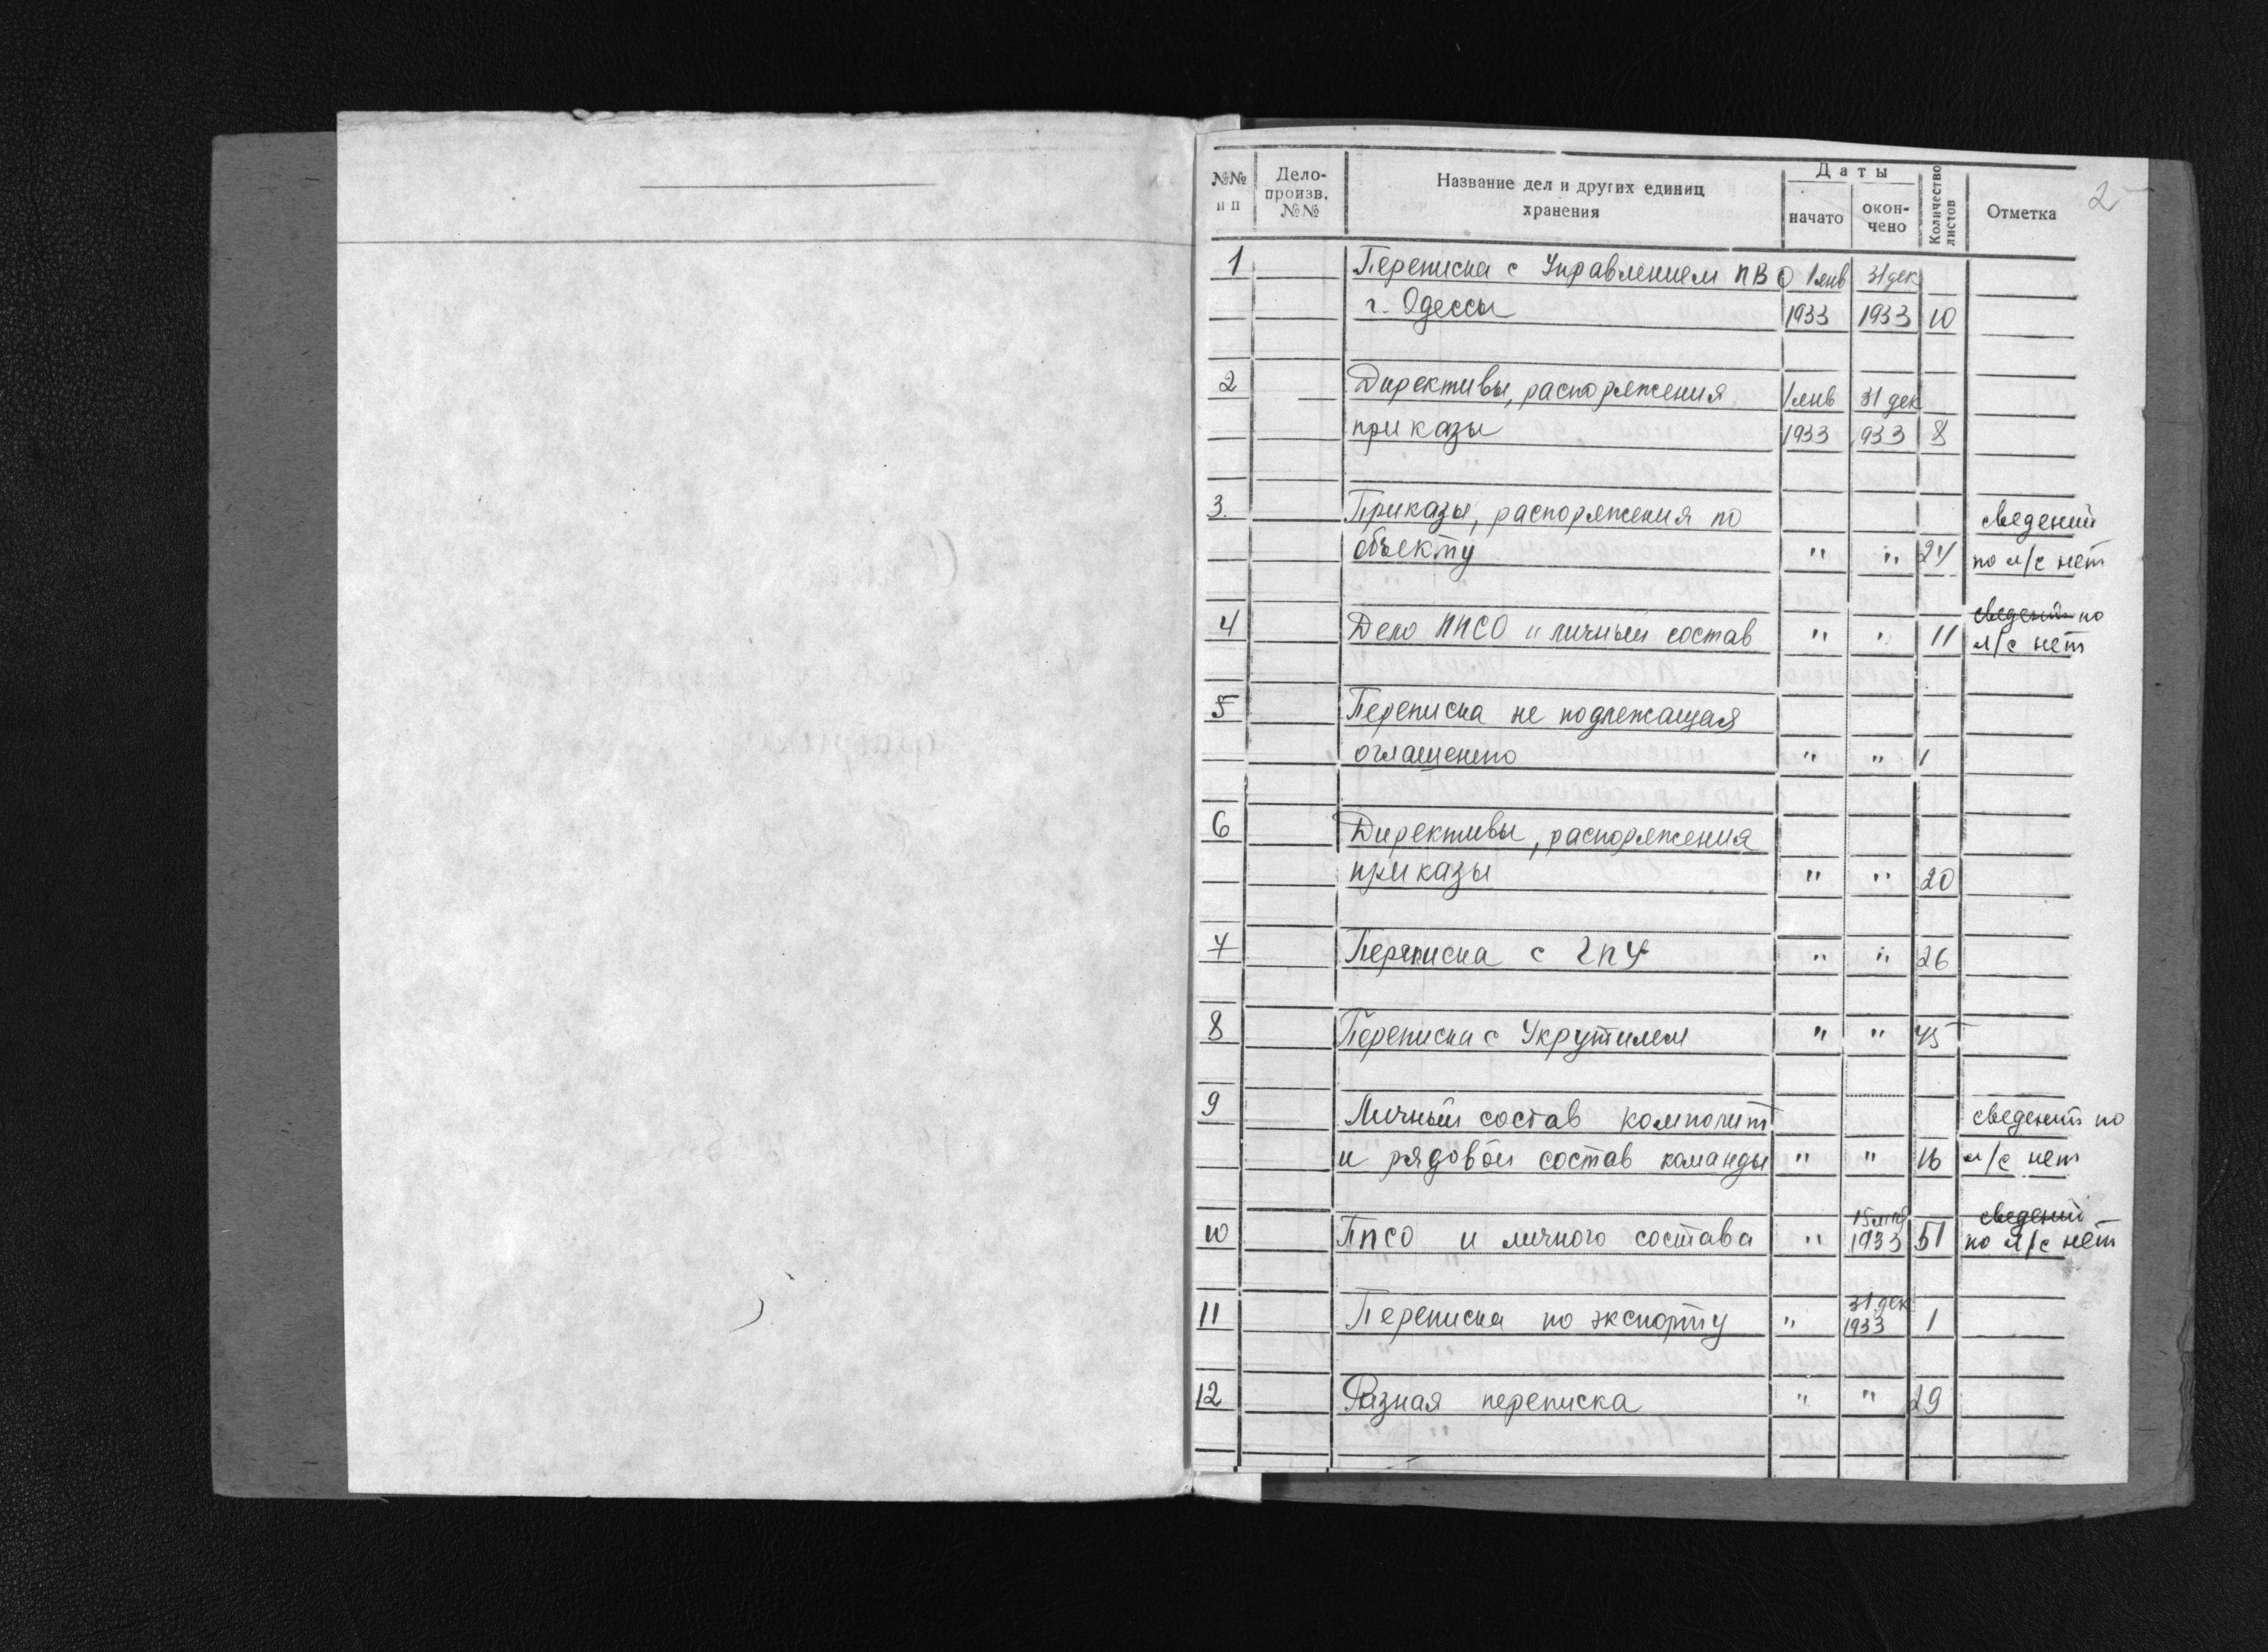 2
№№ п п Дело-произв. №№ Название дел и других единиц хранения Даты начато окончено Количество листов Отметка
1 Переписка с Управлением ПВО 1 янв 31 дек
г. Одессы 1933 1933 10
2 Директивы, распоряжения 1 янв 31 дек
приказы 1933 1933 8
3. Приказы, распоряжения по сведений
объекту " " 24 по л/с нет
сведений по
4 Дело ППСО и личный состав " " 11 л/с нет
5 Переписка не подлежащая
оглашению " " 1
6 Директивы, распоряжения
приказы " " 20
7 Переписка с ГПУ " " 26
8 Переписка с Укрутилем " " 45
9 Личный состав комполит сведений по
и рядовой состав команды " " 16 л/с нет
сведений
10 ППСО и личного состава " 1933 51 по л/с нет
31 дек
11 Переписка по экспорту " 1933 1
12 Разная переписка " " 29